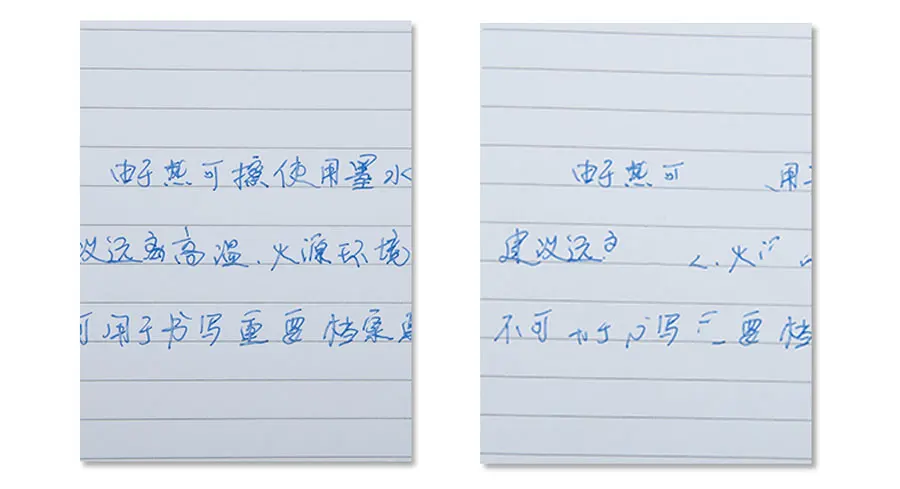 由于热可擦使用墨水
议远离高温、火源环境
可用于书写重要档案
由于热可 用
建议远 火
不可 于 写 要档